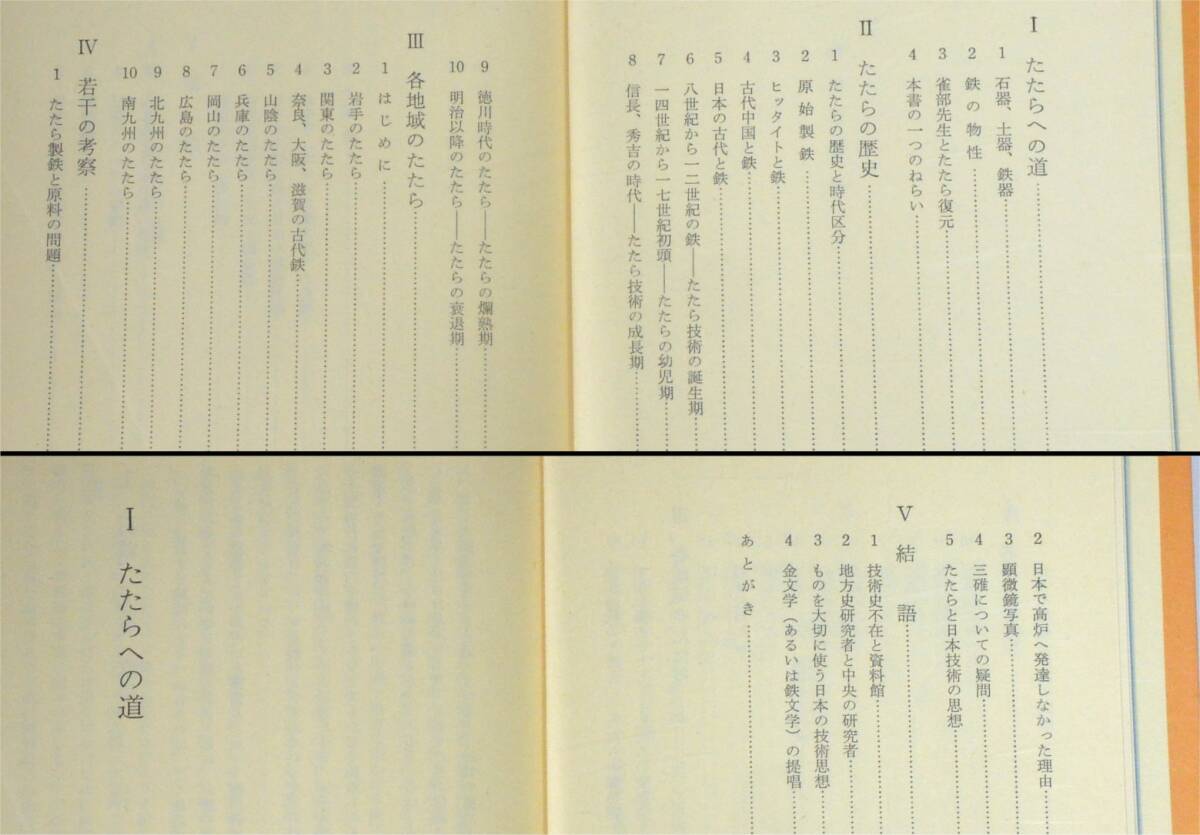 I たたらへの道
1 石器、土器、鉄器
2 鉄の物性
3 雀部先生とたたら復元
4 本書の一つのねらい
II たたらの歴史
1 たたらの歴史と時代区分
2 原始製鉄
3 ヒッタイトと鉄
4 古代中国と鉄
5 日本の古代と鉄
6 八世紀から一二世紀の鉄——たたら技術の誕生期
7 一四世紀から一七世紀初頭——たたらの幼児期
8 信長、秀吉の時代——たたら技術の成長期
9 徳川時代のたたら——たたらの爛熟期
10 明治以降のたたら——たたらの衰退期
III 各地域のたたら
1 はじめに
2 岩手のたたら
3 関東のたたら
4 奈良、大阪、滋賀の古代鉄
5 山陰のたたら
6 兵庫のたたら
7 岡山のたたら
8 広島のたたら
9 北九州のたたら
10 南九州のたたら
IV 若干の考察
1 たたら製鉄と原料の問題
2 日本で高炉へ発達しなかった理由
3 顕微鏡写真
4 三確についての疑問
5 たたらと日本技術の思想
V 結語
1 技術史不在と資料館
2 地方史研究者と中央の研究者
3 ものを大切に使う日本の技術思想
4 金文学（あるいは鉄文学）の提唱
あとがき
I たたらへの道